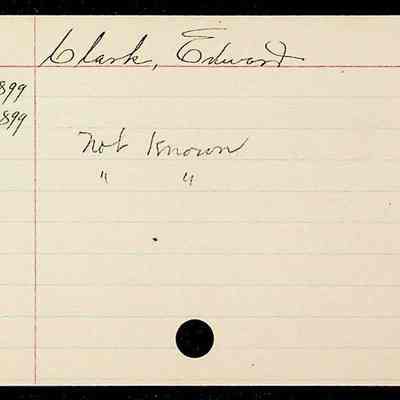 Clark, Edward
899
899
Not Known
" "